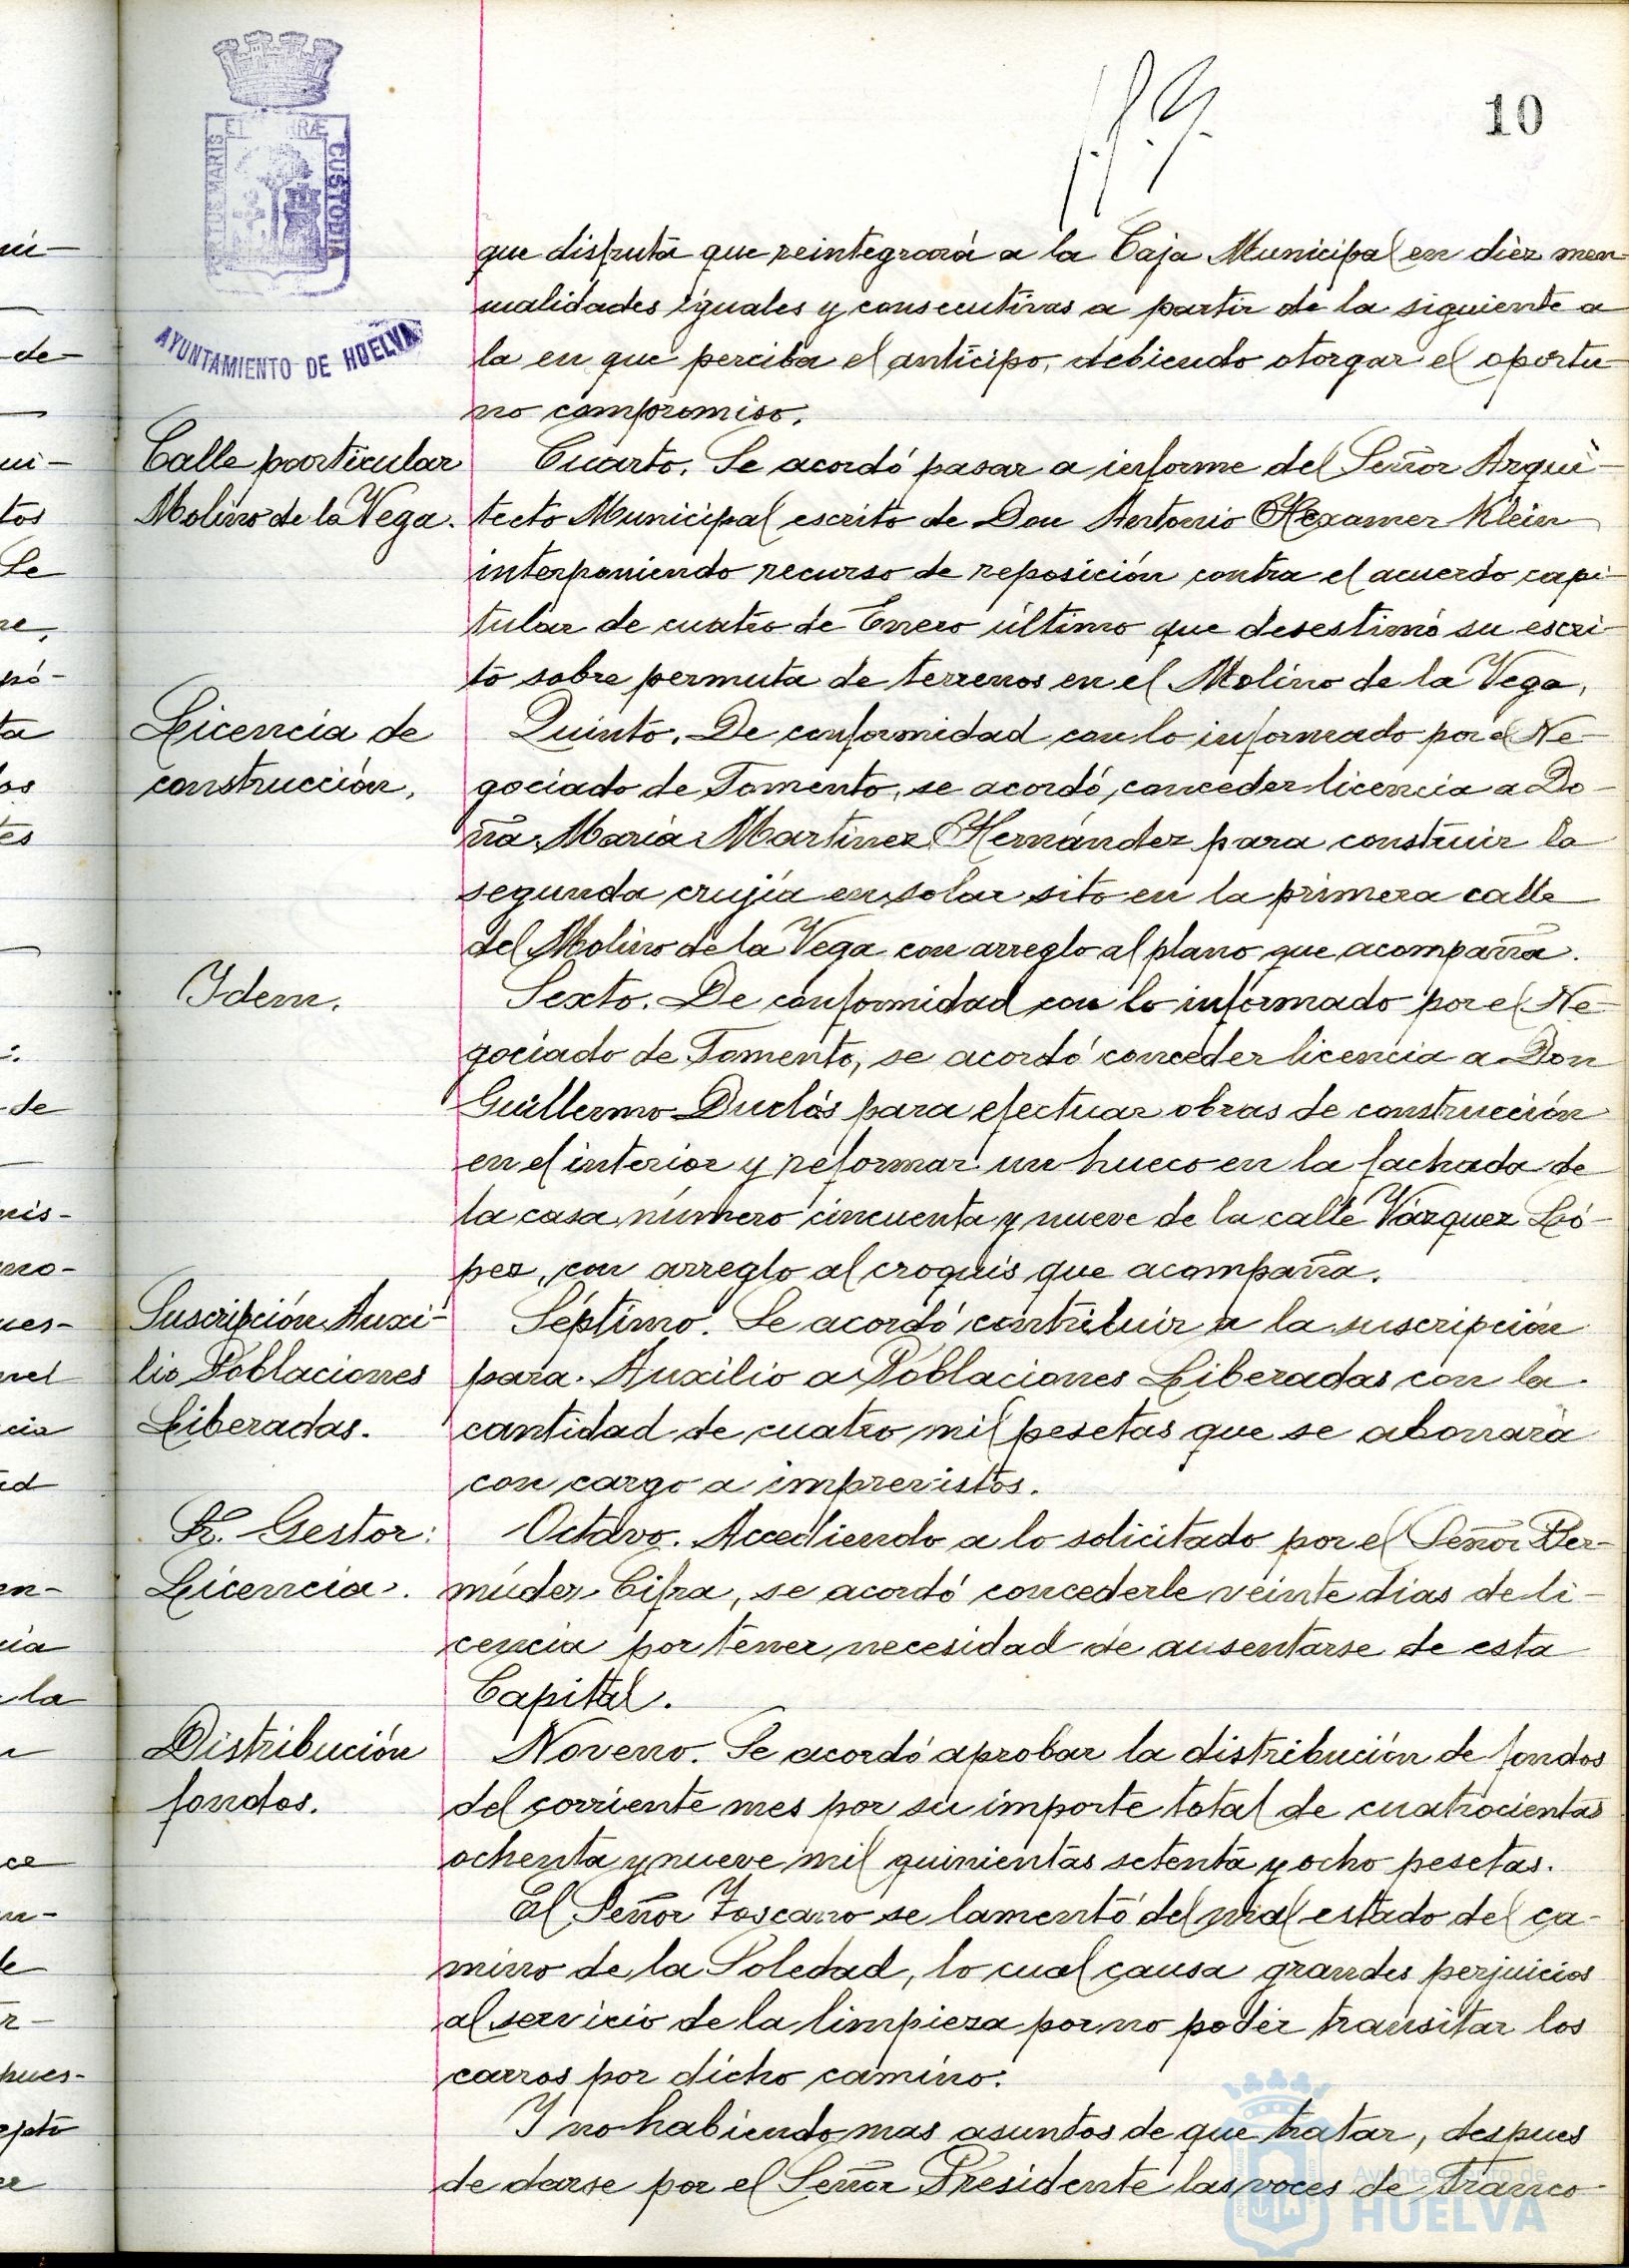 10
PORTUS MARIS ET TERRÆ CUSTODIA
AYUNTAMIENTO DE HUELVA
que disfruta que reintegrará a la Caja Municipal en diez men-
sualidades iguales y consecutivas a partir de la siguiente a
la en que perciba el anticipo, debiendo otorgar el oportu-
no compromiso.
Calle particular
Molino de la Vega.
Cuarto. Se acordó pasar a informe del Señor Arqui-
tecto Municipal escrito de Don Antonio Hexamer Klein
interponiendo recurso de reposición contra el acuerdo capi-
tular de cuatro de Enero último que desestimó su escri-
to sobre permuta de terrenos en el Molino de la Vega.
Licencia de
construcción.
Quinto. De conformidad con lo informado por el Ne-
gociado de Fomento, se acordó conceder licencia a Do-
ña María Martínez Hernández para construir la
segunda crujía en solar sito en la primera calle
del Molino de la Vega con arreglo al plano que acompaña.
Idem.
Sexto. De conformidad con lo informado por el Ne-
gociado de Fomento, se acordó conceder licencia a Don
Guillermo Duclós para efectuar obras de construcción
en el interior y reformar un hueco en la fachada de
la casa número cincuenta y nueve de la calle Vázquez Ló-
pez, con arreglo al croquis que acompaña.
Suscripción Auxi-
lio Poblaciones
Liberadas.
Séptimo. Se acordó contribuir a la suscripción
para Auxilio a Poblaciones Liberadas con la
cantidad de cuatro mil pesetas que se abonará
con cargo a imprevistos.
Sr. Gestor:
Licencia.
Octavo. Accediendo a lo solicitado por el Señor Ber-
múdez Cifra, se acordó concederle veinte días de li-
cencia por tener necesidad de ausentarse de esta
Capital.
Distribución
fondos.
Noveno. Se acordó aprobar la distribución de fondos
del corriente mes por su importe total de cuatrocientas
ochenta y nueve mil quinientas setenta y ocho pesetas.
El Señor Toscano se lamentó del mal estado del ca-
mino de la Soledad, lo cual causa grandes perjuicios
al servicio de la limpieza por no poder transitar los
carros por dicho camino.
Y no habiendo mas asuntos de que tratar, despues
de darse por el Señor Presidente las voces de Franco
Ayuntamiento de
HUELVA